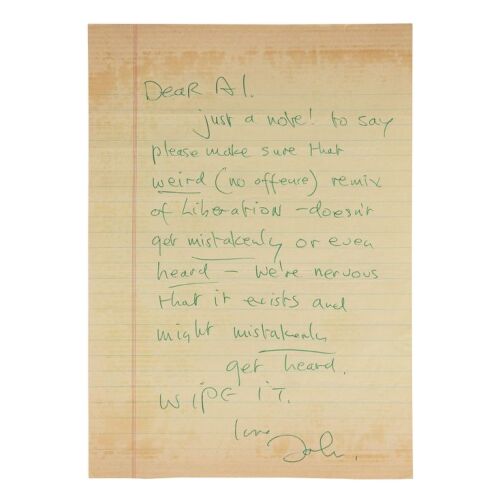 Dear Al.
just a note! to say
please make sure that
weird (no offence) remix
of Liberation - doesn't
get mistakenly or even
heard - We're nervous
that it exists and
might mistakenly
get heard.
WIPE IT.
love John.